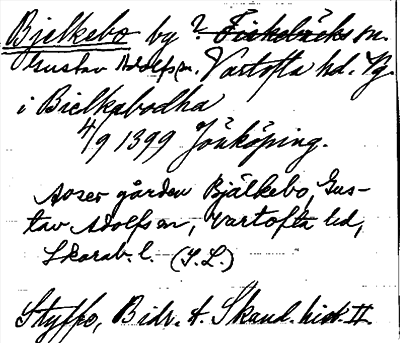 Bjelkebo by ? Fiskebäcks sn.
Gustav Adolfs sn. Vartofta hd. Vg.
i Bielkabodha
4/9 1399 Jönköping.
Avser gården Bjälkebo, Gus-
tav Adolfs sn, Vartofta hd,
Skarab. l. (S.L.)
Styffe, Bidr. t. Skand. hist. II